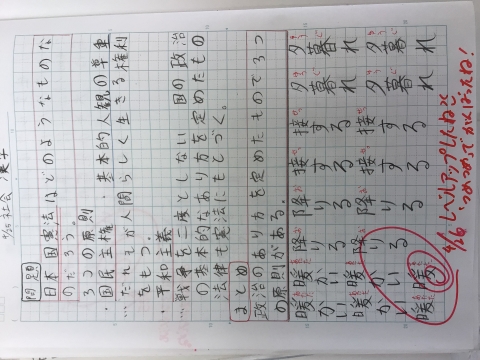 9/25 社会 漢字
問題
日本国憲法はどのようなものな
のだろう。
3つの原則
・国民主権 ・基本的人観の尊重
…だれもが人間らしく生きる権利
をもつ。
・平和主義
…戦争を二度としない 国の政治
の基本的なあり方を定めたもの
法律も憲法にもとづく。
まとめ
政治のあり方を定めたもので3つ
の原則がある。
暖かい 暖かい 降りる 降りる 接する 接する 夕暮れ 夕暮れ
暖かい 暖かい 降りる 降りる 接する 接する 夕暮れ 夕暮れ
9/26 レベルアップしたねと
がんばったね!